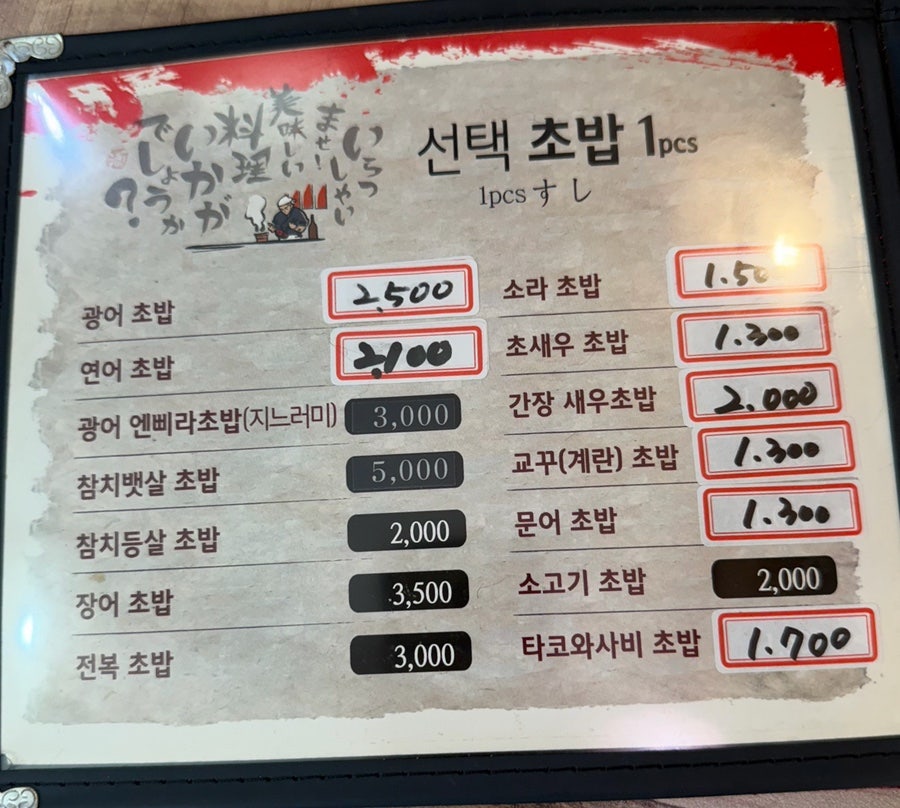 いらっしゃい
ませ！
美味しい
料理が
いかが
でしょうか
？
선택 초밥 1pcs
1pcs すし
광어 초밥 2,500
연어 초밥 2,100
광어 엔삐라초밥(지느러미) 3,000
참치뱃살 초밥 5,000
참치등살 초밥 2,000
장어 초밥 3,500
전복 초밥 3,000
소라 초밥
초새우 초밥 1.300
간장 새우초밥 2.000
교꾸(계란) 초밥 1.300
문어 초밥 1.300
소고기 초밥 2,000
타코와사비 초밥 1.700